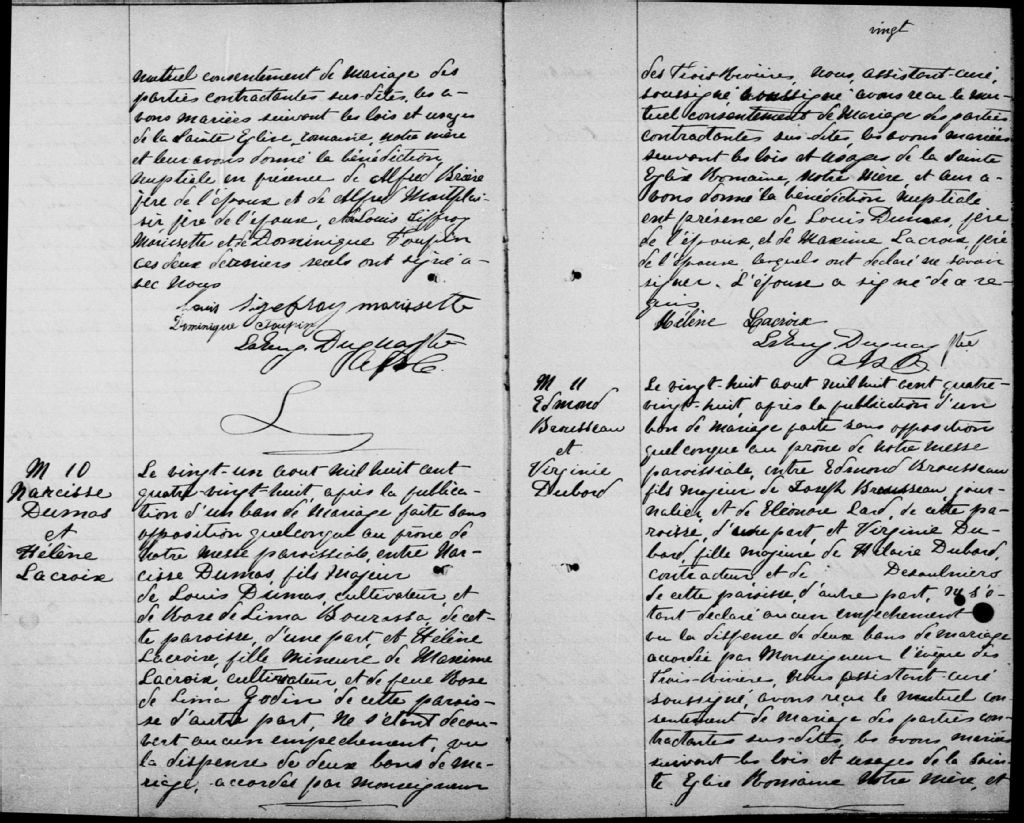 mutuel consentement de Mariage des
parties contractantes sus-dites, les a-
vons mariées suivant les lois et usages
de la Sainte Eglise romaine, notre mère
et leur avons donné la bénédiction
nuptiale en présence de Alfred
père de l'époux et de Alfred Montplai-
sir père de l'épouse, de Louis
Morissette et de Dominique Toupin
ces deux derniers seuls ont signé a-
vec nous
Louis Sigefroy morissette
Dominique Toupin
Duguay Ptre
M 10
Narcisse
Dumas
et
Hélène
Lacroix
Le vingt-un aout mil huit cent
quatre-vingt-huit, après la publica-
tion d'un ban de Mariage faite sans
opposition quelconque au prône de
Notre messe paroissiale, entre Nar-
cisse Dumas, fils Majeur
de Louis Dumas, cultivateur, et
de Rose de Lima Bourassa, de cet-
te paroisse, d'une part, et Hélène
Lacroix, fille Mineure de Maxime
Lacroix cultivateur et de feue Rose
de Lima Godin de cette parois-
se d'autre part, Ne s'étant décou-
vert aucun empêchement, vu
la dispense de deux bans de ma-
riage, accordés par Monseigneur
vingt
des Trois-Rivières, Nous, assistant-curé,
soussigné avons reçu le mu-
tuel consentement de Mariage des parties
contractantes sus-dites, les avons mariées
suivant les lois et usages de la Sainte
Eglise Romaine, Notre Mère et leur a-
vons donné la bénédiction nuptiale
ent présence de Louis Dumas, père
de l'époux, et de Maxime Lacroix, père
de l'épouse lesquels ont déclaré ne savoir
signer. L'épouse a signé de ce re-
quis
Hélène Lacroix
Duguay Ptre
M 11
Edmond
Brousseau
et
Virginie
Dubord
Le vingt-huit aout mil huit cent quatre-
vingt-huit, après la publication d'un
ban de mariage faite sans opposition
quelconque au prône de notre messe
paroissiale, entre Edmond Brousseau
fils majeur de Joseph Brousseau, jour-
nalier, et de Eléonore Lard, de cette pa-
roisse, d'une part, et Virginie Du-
bord, fille majeure de Hilaire Dubord,
contracteur, et de Desaulniers
de cette paroisse, d'autre part, ne s'é-
tant déclaré aucun empêchement
vu la dispense de deux bans de mariage
accordée par Monseigneur l'évêque des
Trois-Rivières, Nous assistant-curé
soussigné, avons reçu le mutuel con-
sentement de mariage des parties con-
tractantes sus-dites, les avons mariés
suivant les lois et usages de la Sain-
te Eglise Romaine Notre Mère, et